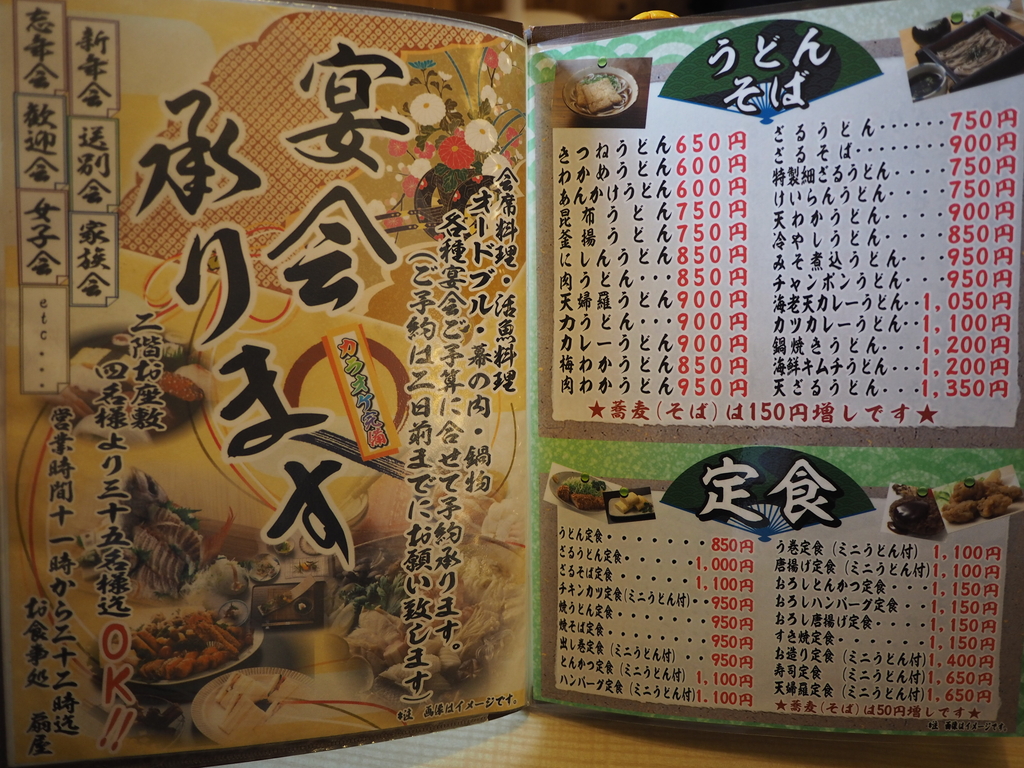 宴会
承ります
新年会
忘年会
送別会
歓迎会
家族会
女子会
etc...
カラオケ完備
会席料理・活魚料理
オードブル・幕の内・鍋物
各種宴会ご予算に合せて予約承ります。
(ご予約は二日前までにお願い致します)
二階お座敷
四名様より三十五名様迄OK!!
営業時間十一時から二十二時迄
お食事処 扇屋
*注 画像はイメージです。
うどん
そば
きつねうどん 650円
わかめうどん 600円
あんかけうどん 600円
昆布うどん 750円
釜揚うどん 750円
にしんうどん 850円
肉うどん・・・ 850円
天婦羅うどん 900円
力うどん・・・ 900円
カレーうどん 900円
梅わかうどん 850円
肉わかうどん 950円
ざるうどん・・・・・・750円
ざるそば・・・・・・・900円
特製細ざるうどん・・・750円
けいらんうどん・・・・750円
天わかうどん・・・・・900円
冷やしうどん・・・・・850円
みそ煮込うどん・・・・950円
チャンポンうどん・・・950円
海老天カレーうどん・・1,050円
カツカレーうどん・・・1,100円
鍋焼きうどん・・・・・1,200円
海鮮キムチうどん・・・1,200円
天ざるうどん・・・・・1,350円
★蕎麦(そば)は150円増しです★
定食
うどん定食・・・・・・・850円
ざるうどん定食・・・・・1,000円
ざるそば定食・・・・・・1,100円
チキンカツ定食(ミニうどん付)・・950円
焼うどん定食・・・・・・950円
焼そば定食・・・・・・・950円
出し巻定食(ミニうどん付)・・950円
とんかつ定食(ミニうどん付)・1,100円
ハンバーグ定食(ミニうどん付)1,100円
う巻定食(ミニうどん付)1,100円
唐揚げ定食(ミニうどん付)1,100円
おろしとんかつ定食・・・1,150円
おろしハンバーグ定食・・・1,150円
おろし唐揚げ定食・・・・1,150円
すき焼定食・・・・・・・1,150円
お造り定食(ミニうどん付)1,400円
寿司定食(ミニうどん付)1,650円
天婦羅定食(ミニうどん付)1,650円
★蕎麦(そば)は50円増しです★
*注 画像はイメージです。